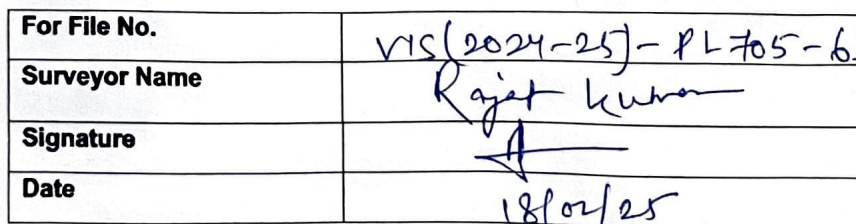 For File No. VIS(2024-25)-PL705-6
Surveyor Name Rajat Kumar
Signature
Date 18/02/25